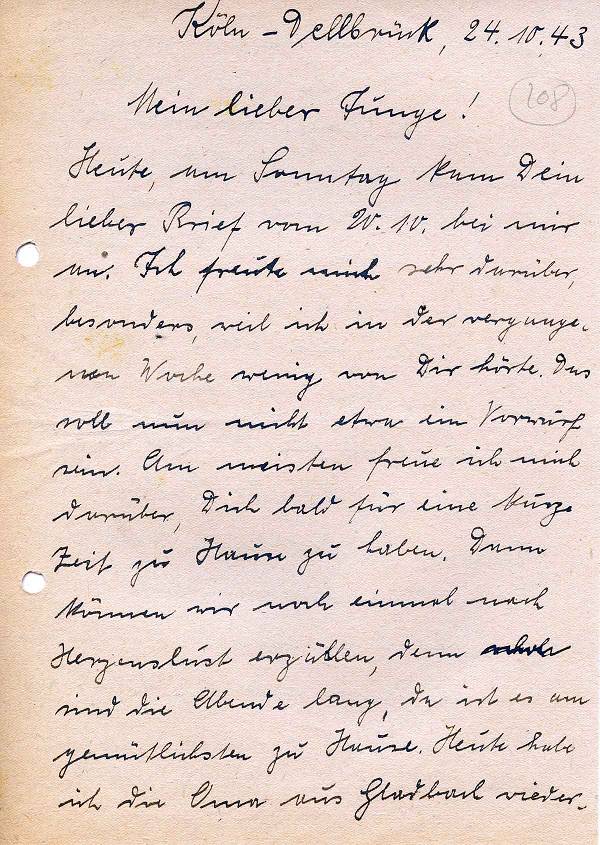 Köln-Dellbrück, 24.10.43
108
Mein lieber Junge!
Heute, am Sonntag kam Dein
lieber Brief vom 20.10. bei mir
an. Ich freute mich sehr darüber,
besonders, weil ich in der vergange-
nen Woche wenig von Dir hörte. Das
soll nun nicht etwa ein Vorwurf
sein. Am meisten freue ich mich
darüber, Dich bald für eine kurze
Zeit zu Hause zu haben. Dann
können wir noch einmal nach
Herzenslust erzählen, denn
sind die Abende lang, da ist es am
gemütlichsten zu Hause. Heute habe
ich die Oma aus Gladbach wieder-